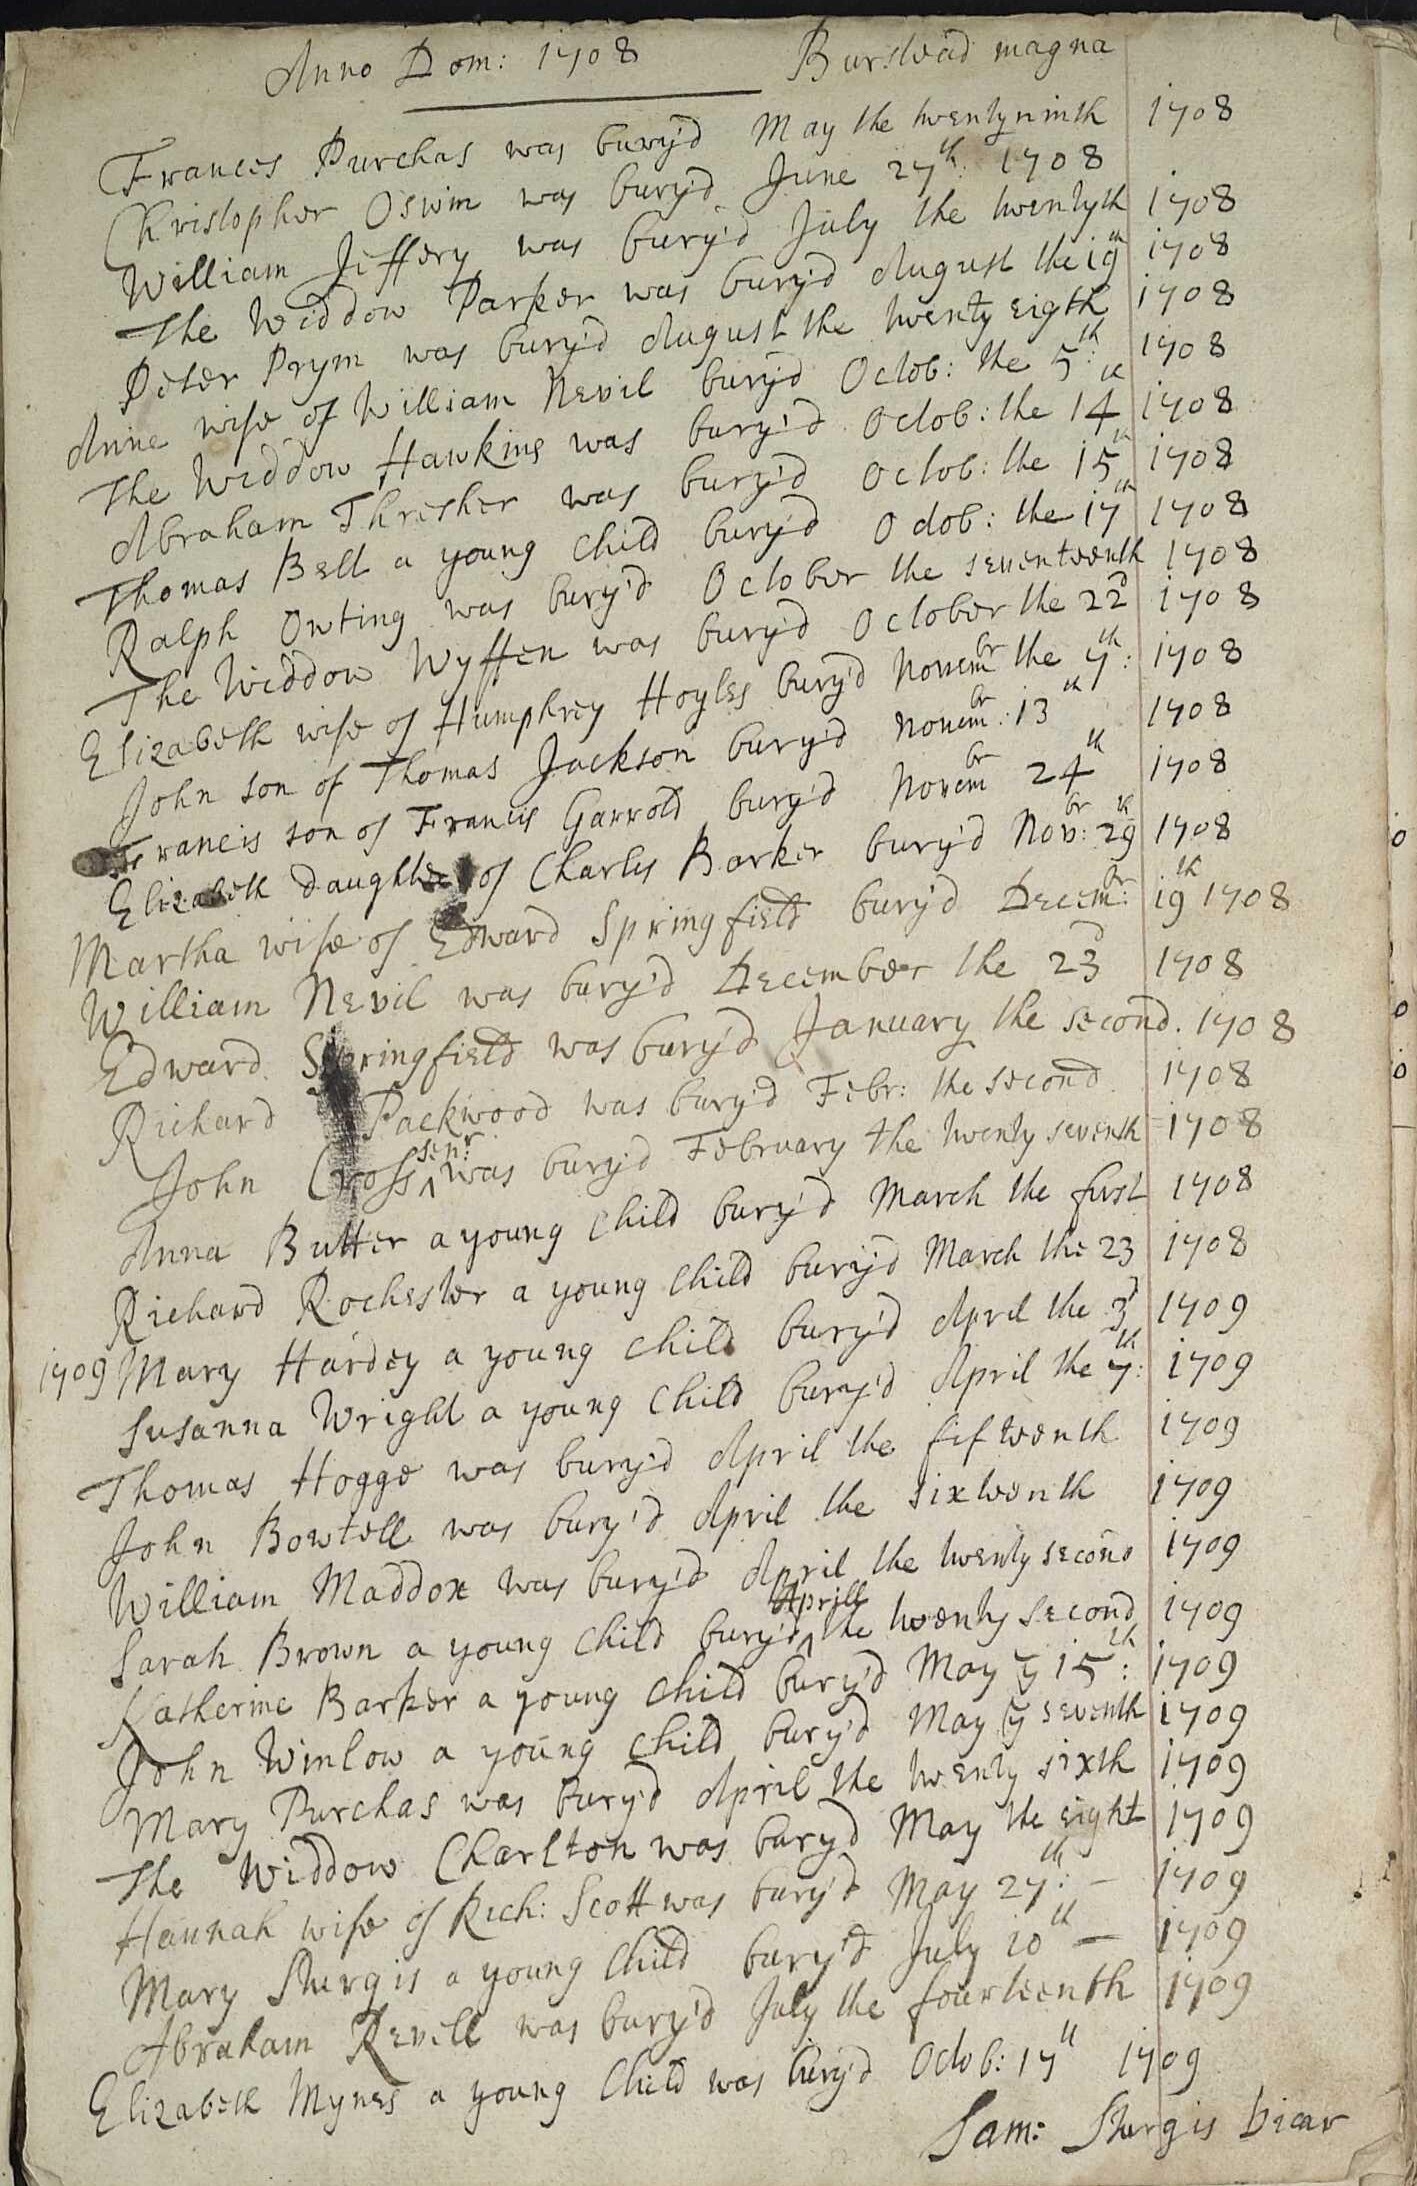 Anno Dom: 1708 Burstead magna
Frances Purchas was bury'd May the twentyninth 1708
Christopher Oswin was bury'd June 27th: 1708
William Jeffery was bury'd July the twentyth 1708
The Widdow Parker was bury'd August the 19th 1708
Peter Prym was bury'd August the twenty eigth 1708
Anne wife of William Nevil bury'd Octob: the 5th: 1708
The Widdow Hawkins was bury'd Octob: the 14th 1708
Abraham Thresher was bury'd Octob: the 15th 1708
Thomas Bell a young child bury'd Octob: the 17th 1708
Ralph Owting was bury'd October the seventeenth 1708
The Widdow Wyffen was bury'd October the 22d 1708
Elizabeth wife of Humphrey Hoyles bury'd Novembr the 7th: 1708
John son of Thomas Jackson bury'd Novembr: 13th 1708
Francis son of Francis Garrold bury'd Novembr 24th 1708
Elizabeth daughter of Charles Barker bury'd Novbr: 29th 1708
Martha wife of Edward Springfield bury'd Decembr: 19th 1708
William Nevil was bury'd December the 23d 1708
Edward Springfield was bury'd January the second. 1708
Richard Packwood was bury'd Febr: the second 1708
John Cross senr: was bury'd February the twenty seventh 1708
Anna Butter a young child bury'd March the first 1708
Richard Rochester a young child bury'd March the 23 1708
1709 Mary Hardey a young child bury'd April the 3d 1709
Susanna Wright a young child bury'd April the 7th: 1709
Thomas Hogge was bury'd April the fifteenth 1709
John Bowtell was bury'd April the sixteenth 1709
William Maddox was bury'd April the twenty second 1709
Sarah Brown a young child bury'd Aprill the twenty second 1709
Katherine Barker a young child bury'd May ye 15th: 1709
John Winlow a young child bury'd May ye seventh 1709
Mary Purchas was bury'd April the twenty sixth 1709
The Widdow Charlton was bury'd May the eight 1709
Hannah wife of Rich: Scott was bury'd May 27th: – 1709
Mary Sturgis a young child bury'd July 10th — 1709
Abraham Revell was bury'd July the fourteenth 1709
Elizabeth Mynes a young child was bury'd Octob: 17th 1709
Sam: Sturgis Vicar